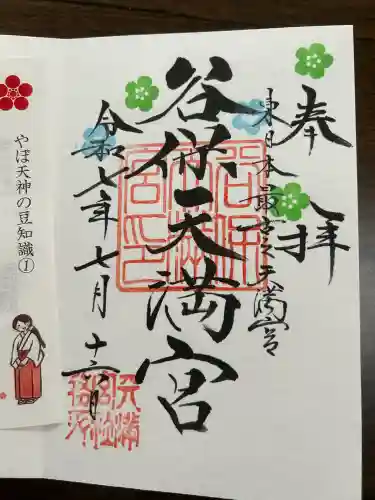 奉拝
東日本最古之天満宮
谷保天満宮
令和七年七月十六日
やぼ天神の豆知識①
谷保天満宮印